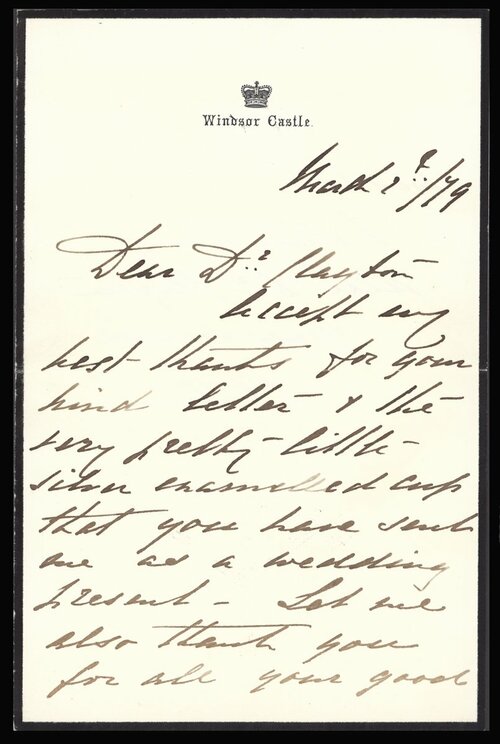 Windsor Castle.
March 2d./79
Dear Dr. Clayton
Accept my
best thanks for your
kind letter & the
very pretty little
silver enamelled cup
that you have sent
me as a wedding
present - Let me
also thank you
for all your good